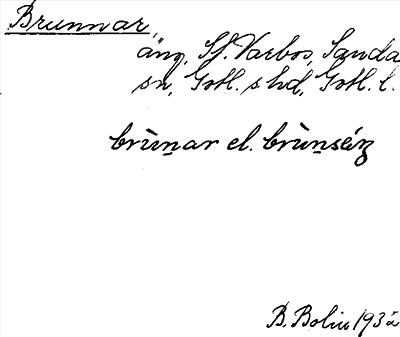 Brunnar,
äng, St. Varbos, Sanda
sn, Gotl. s hd, Gotl. l.
brùnar el. brùnséiz
B. Bolin 1932